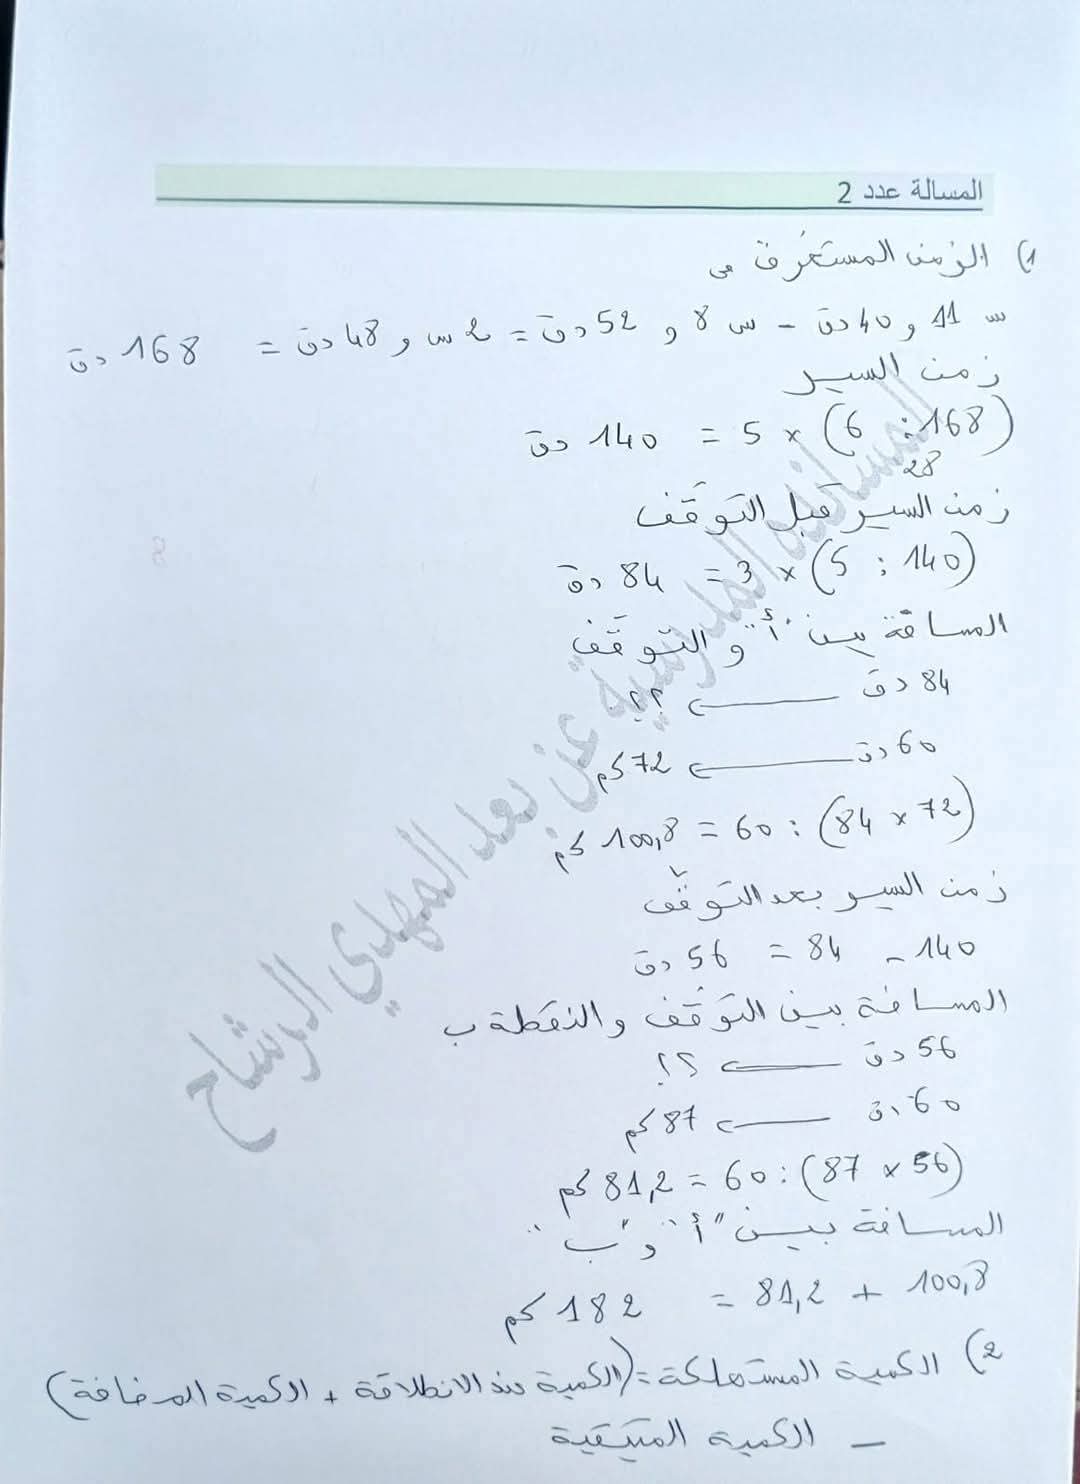 المسالة عدد 2
1) الزمن المستغرق
س 11 و 40 دق - س 8 و 52 دق = 2 س و 48 دق = 168 دق
زمن السير
(168 : 6) × 5 = 140 دق
28
زمن السير قبل التوقف
(140 : 5) × 3 = 84 دق
المسافة بين "أ" و التوقف
84 دق ← ؟؟
60 دق ← 72 كم
(72 × 84) : 60 = 100,8 كم
زمن السير بعد التوقف
140 - 84 = 56 دق
المسافة بين التوقف والنقطة ب
56 دق ← ؟؟
60 دق ← 87 كم
(56 × 87) : 60 = 81,2 كم
المسافة بين "أ" و "ب"
100,8 + 81,2 = 182 كم
2) الكمية المستهلكة = (الكمية عند الانطلاقة + الكمية المضافة)
- الكمية المتبقية
المساندة المدرسية عن بعد المهدي الرشاح